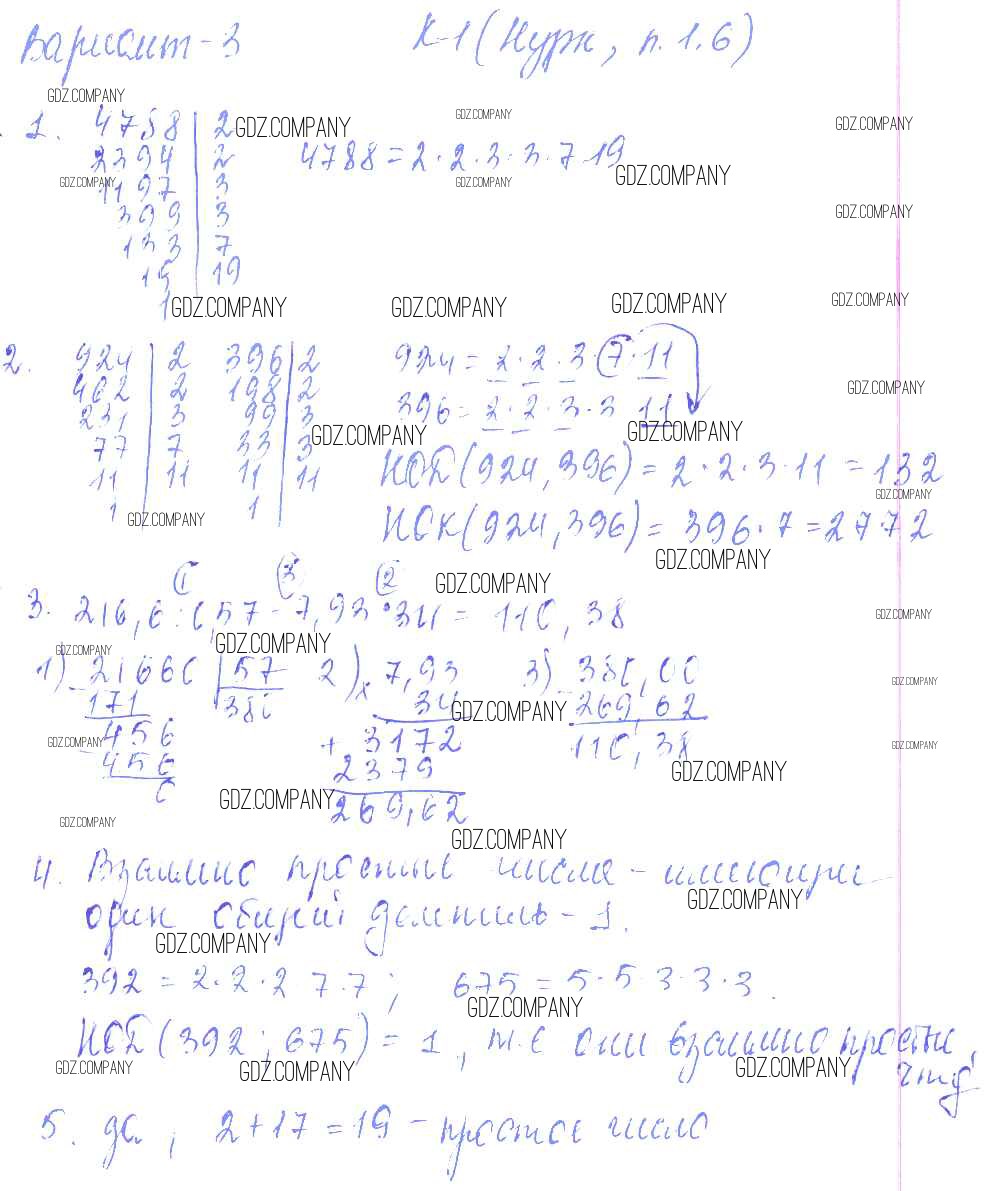 Вариант - 3 К-1 (Нурк, п. 1.6)
GDZ.COMPANY
1. 4788 | 2 GDZ.COMPANY GDZ.COMPANY GDZ.COMPANY
2394 | 2 4788 = 2 · 2 · 3 · 3 · 7 · 19
GDZ.COMPANY 1197 | 3 GDZ.COMPANY GDZ.COMPANY
399 | 3 GDZ.COMPANY
133 | 7
19 | 19
1 GDZ.COMPANY GDZ.COMPANY GDZ.COMPANY GDZ.COMPANY
2. 924 | 2 396 | 2 924 = 2 · 2 · 3 (7 · 11
462 | 2 198 | 2 GDZ.COMPANY
231 | 3 99 | 3 396 = 2 · 2 · 3 · 3 11
77 | 7 33 | 3 GDZ.COMPANY GDZ.COMPANY
11 | 11 11 | 11 НОД (924, 396) = 2 · 2 · 3 · 11 = 132
GDZ.COMPANY
1 GDZ.COMPANY 1 НОК (924, 396) = 396 · 7 = 2772
GDZ.COMPANY
1 3 2 GDZ.COMPANY
3. 216,6 : 0,57 - 7,93 · 34 = 110,38 GDZ.COMPANY
GDZ.COMPANY GDZ.COMPANY
1) 21660 | 57 2) x 7,93 3) 380,00 GDZ.COMPANY
171 380 34 GDZ.COMPANY 269,62
GDZ.COMPANY 456 + 3172 110,38 GDZ.COMPANY
456 2379 GDZ.COMPANY
0 GDZ.COMPANY 269,62
GDZ.COMPANY GDZ.COMPANY
4. Взаимно простые числа - имеющие
GDZ.COMPANY
один общий делитель - 1.
GDZ.COMPANY
392 = 2 · 2 · 2 · 7 · 7 ; 675 = 5 · 5 · 3 · 3 · 3.
GDZ.COMPANY
НОД (392 ; 675) = 1, т.е они взаимно просты,
GDZ.COMPANY GDZ.COMPANY GDZ.COMPANY чтд
5. да, 2 + 17 = 19 - простое число